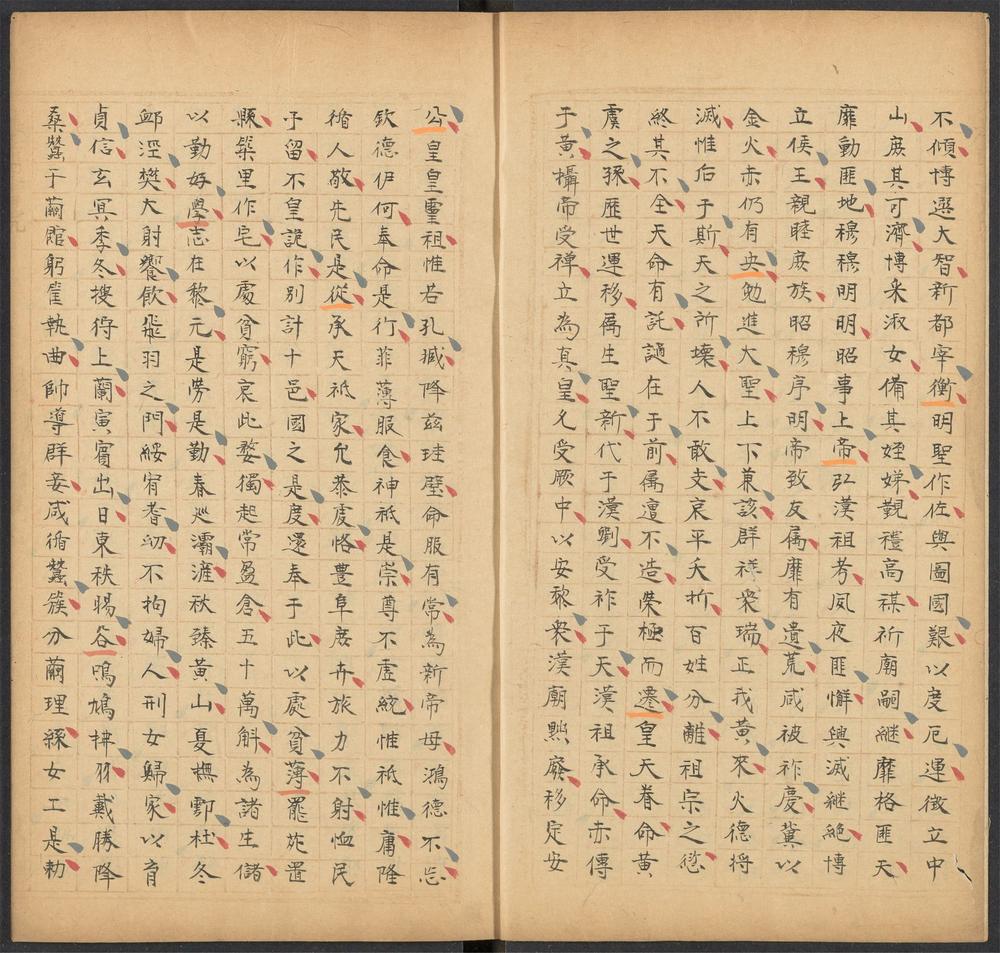 不傾博選大智新都宰衡明聖作佐與圖國艱以度厄運徵立中
山庶其可濟博采淑女備其姪娣覲禮高禖祈廟嗣継靡格匪天
靡動匪地穆穆明明昭事上帝弘漢祖考夙夜匪懈興滅継絕博
立侯王親睦庶族昭穆序明帝致友属靡有遺荒咸被祚慶冀以
金火赤仍有央勉進大聖上下兼該群祥衆瑞正我黃來火德將
滅惟后于斯天之所壞人不敢支哀平夭折百姓分離祖宗之愆
終其不全天命有託謫在于前属遭不造榮極而遷皇天眷命黃
虞之孫歷世運移属生聖新代于漢劉受祚于天漢祖承命赤傳
于黃攝帝受禪立為真皇允受厥中以安黎衆漢廟黜廢移定安
公皇皇靈祖惟若孔臧降茲珪璧命服有常為新帝母鴻德不忘
欽德伊何奉命是行菲薄服食神祇是崇尊不虛統惟祇惟庸隆
循人敬先民是從承天祇家允恭虔恪豊阜庶卉旅力不射恤民
于留不皇詭作別計十邑國之是度還奉于此以處貧薄罷苑置
縣築里作宅以處貧窮哀此嫠獨起常盈倉五十萬斛為諸生儲
以勤好學志在黎元是勞是勤春巡灞滻秋臻黃山夏撫鄠杜冬
卹涇樊大射饗飲飛羽之門綏宥耆幼不拘婦人刑女歸家以育
貞信玄冥季冬搜狩上蘭寅賓出日東秩暘谷鳴鳩拂羽戴勝降
桑蠶于繭館躬筐執曲帥導群妾咸循蠶簇分繭理綵女工是勑